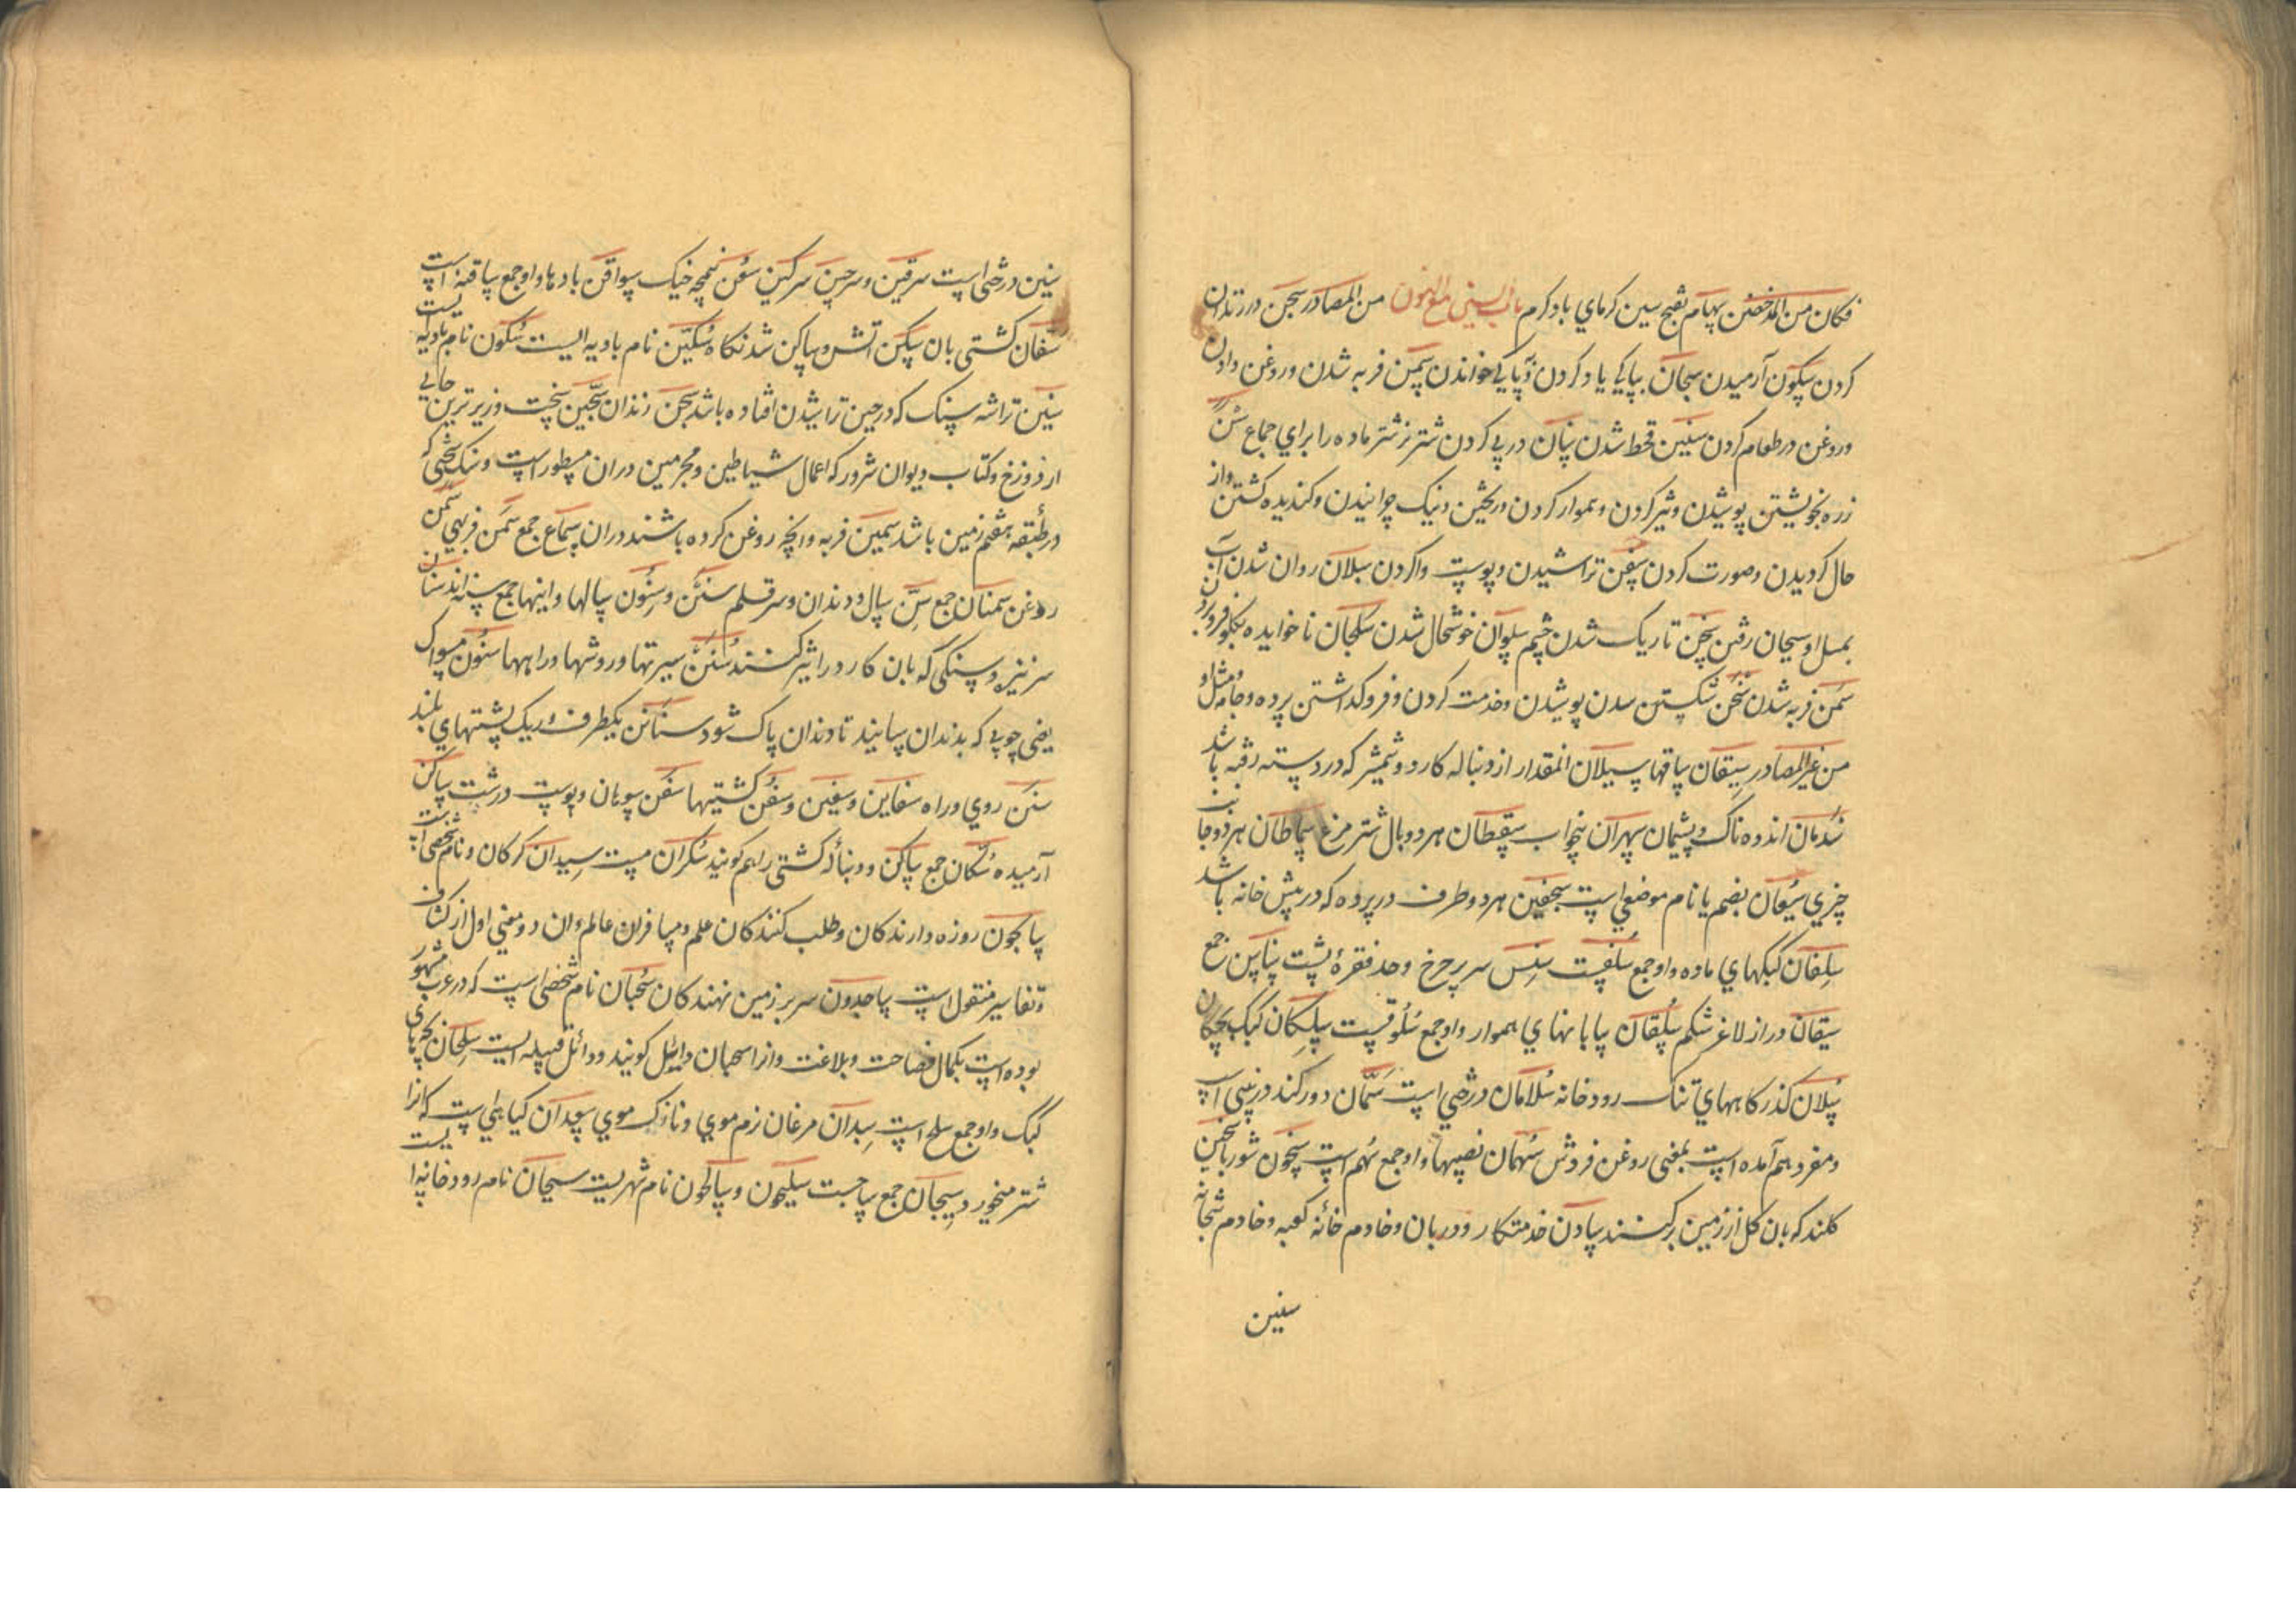 فكان من المدحضين سهام بفتح سين كرماي باد كرم باب السين مع النون من المصادر سجن در زندان
كردن سكون آرميدن سبحان بپاكي ياد كردن و بپاكي خواندن سمن فربه شدن و روغن دادن
و روغن در طعام كردن سنين قحط شدن سنان در پي كردن شتر نر شتر ماده را براي جماع سن
زره بخويشتن پوشيدن و تيز كردن و هموار كردن و ريختن و نيك چرانيدن و كنديده كشتن و از
حال كرديدن و صورت كردن سفن تراشيدن و پوست وا كردن سيلان روان شدن آب
سخن تاريك شدن چشم سلوان خوشحال شدن سلجان ناخوايده بكلو فرو بردن
سمن فربه شدن شكستن سدن پوشيدن و خدمت كردن و فرو كذاشتن پرده و جامه و مثل او
من غير المصادر سيقان ساقها سيلان انمقدار از دنباله كارد و شمشير كه در دسته رفته باشد
سدمان اندوه ناك و پشيمان سهران بيخواب سقطان هر دو بال شتر مرغ سماطان هر دو جانب
چيزي سيعان بضم يا نام موضعي است سجفين هر دو طرف در پرده كه در پيش خانه باشد
سلفان كبكهاي ماده و او جمع سلفست سنسن سر چرخ وحد فقرۀ پشت سناسن جمع
سيقان دراز لاغر شكم سلقان بيابانهاي هموار و او جمع سلوقست سلكان كبك بچكان
سلان كذركاههاي تنك رودخانه سلامان درختي است سمان دو رك اند در بيني اسپ
و مفرد هم آمده است بمعني روغن فروش سهمان نصيبها و او جمع سهم است سخون شوربا سخين
كلند كه بان كل از زمين بركنند سادن خدمتكار و دربان و خادم خانۀ كعبه و خادم بتخانه
سنين
سنين درختي است سرقين و سرجين سركين سعن نيمچه خيك سوافن بادها و او جمع سافنه است
سفان كشتي بان سكن آتش و ساكن شدنكاه سكين نام باديه ايست سكون نام باديه ايست
سنين تراشه سنك كه در حين تراشيدن افتاده باشد سجن زندان سجين سخت و زير ترين جايي
از دوزخ و كتاب ديوان شرور كه اعمال شياطين و مجرمين در ان مسطور است و سنك سختي كه
در طبقه هفتم زمين باشد سمين فربه و آنچه روغن كرده باشند در ان سماع جمع سمن فربهي سمن
روغن سمنان جمع سن سال و دندان و سر قلم سنن و سنون سالها و اينها جمع سنه اند سنان
سر نيزه و سنكي كه بان كارد را تيز كنند سنن سيرتها و روشها و راهها سنون مسواك
يعني چوبي كه بدندان سايند تا دندان پاك شود سناسن يكطرف و ريك پشتهاي بلند
سنن روي و راه سفاين و سفين و سفن كشتيها سفن سوهان و پوست درشت ساكن
آرميده سكان جمع ساكن و دنبالۀ كشتي را هم كويند سكران مست سيدان كركان و نام شخصي است
سايحون روزه دارندكان و طلب كنندكان علم و مسافران عالم و ان دو معني اول از كشاف
و تفاسير منقول است ساجدون سر بر زمين نهندكان سحبان نام شخصي است كه در عرب مشهور
بوده است بكمال فصاحت و بلاغت و انرا سحبان وايل كويند و وائل قبيله ايست سلكان بچه هاي
كبك و او جمع سلك است سبدان مرغان نرم موي و نازك موي سعدان كياهي است كه انرا
شتر ميخورد سيجان جمع ساجست سيلحون و سالحون نام شهريست سيحان نام رودخانه ايست